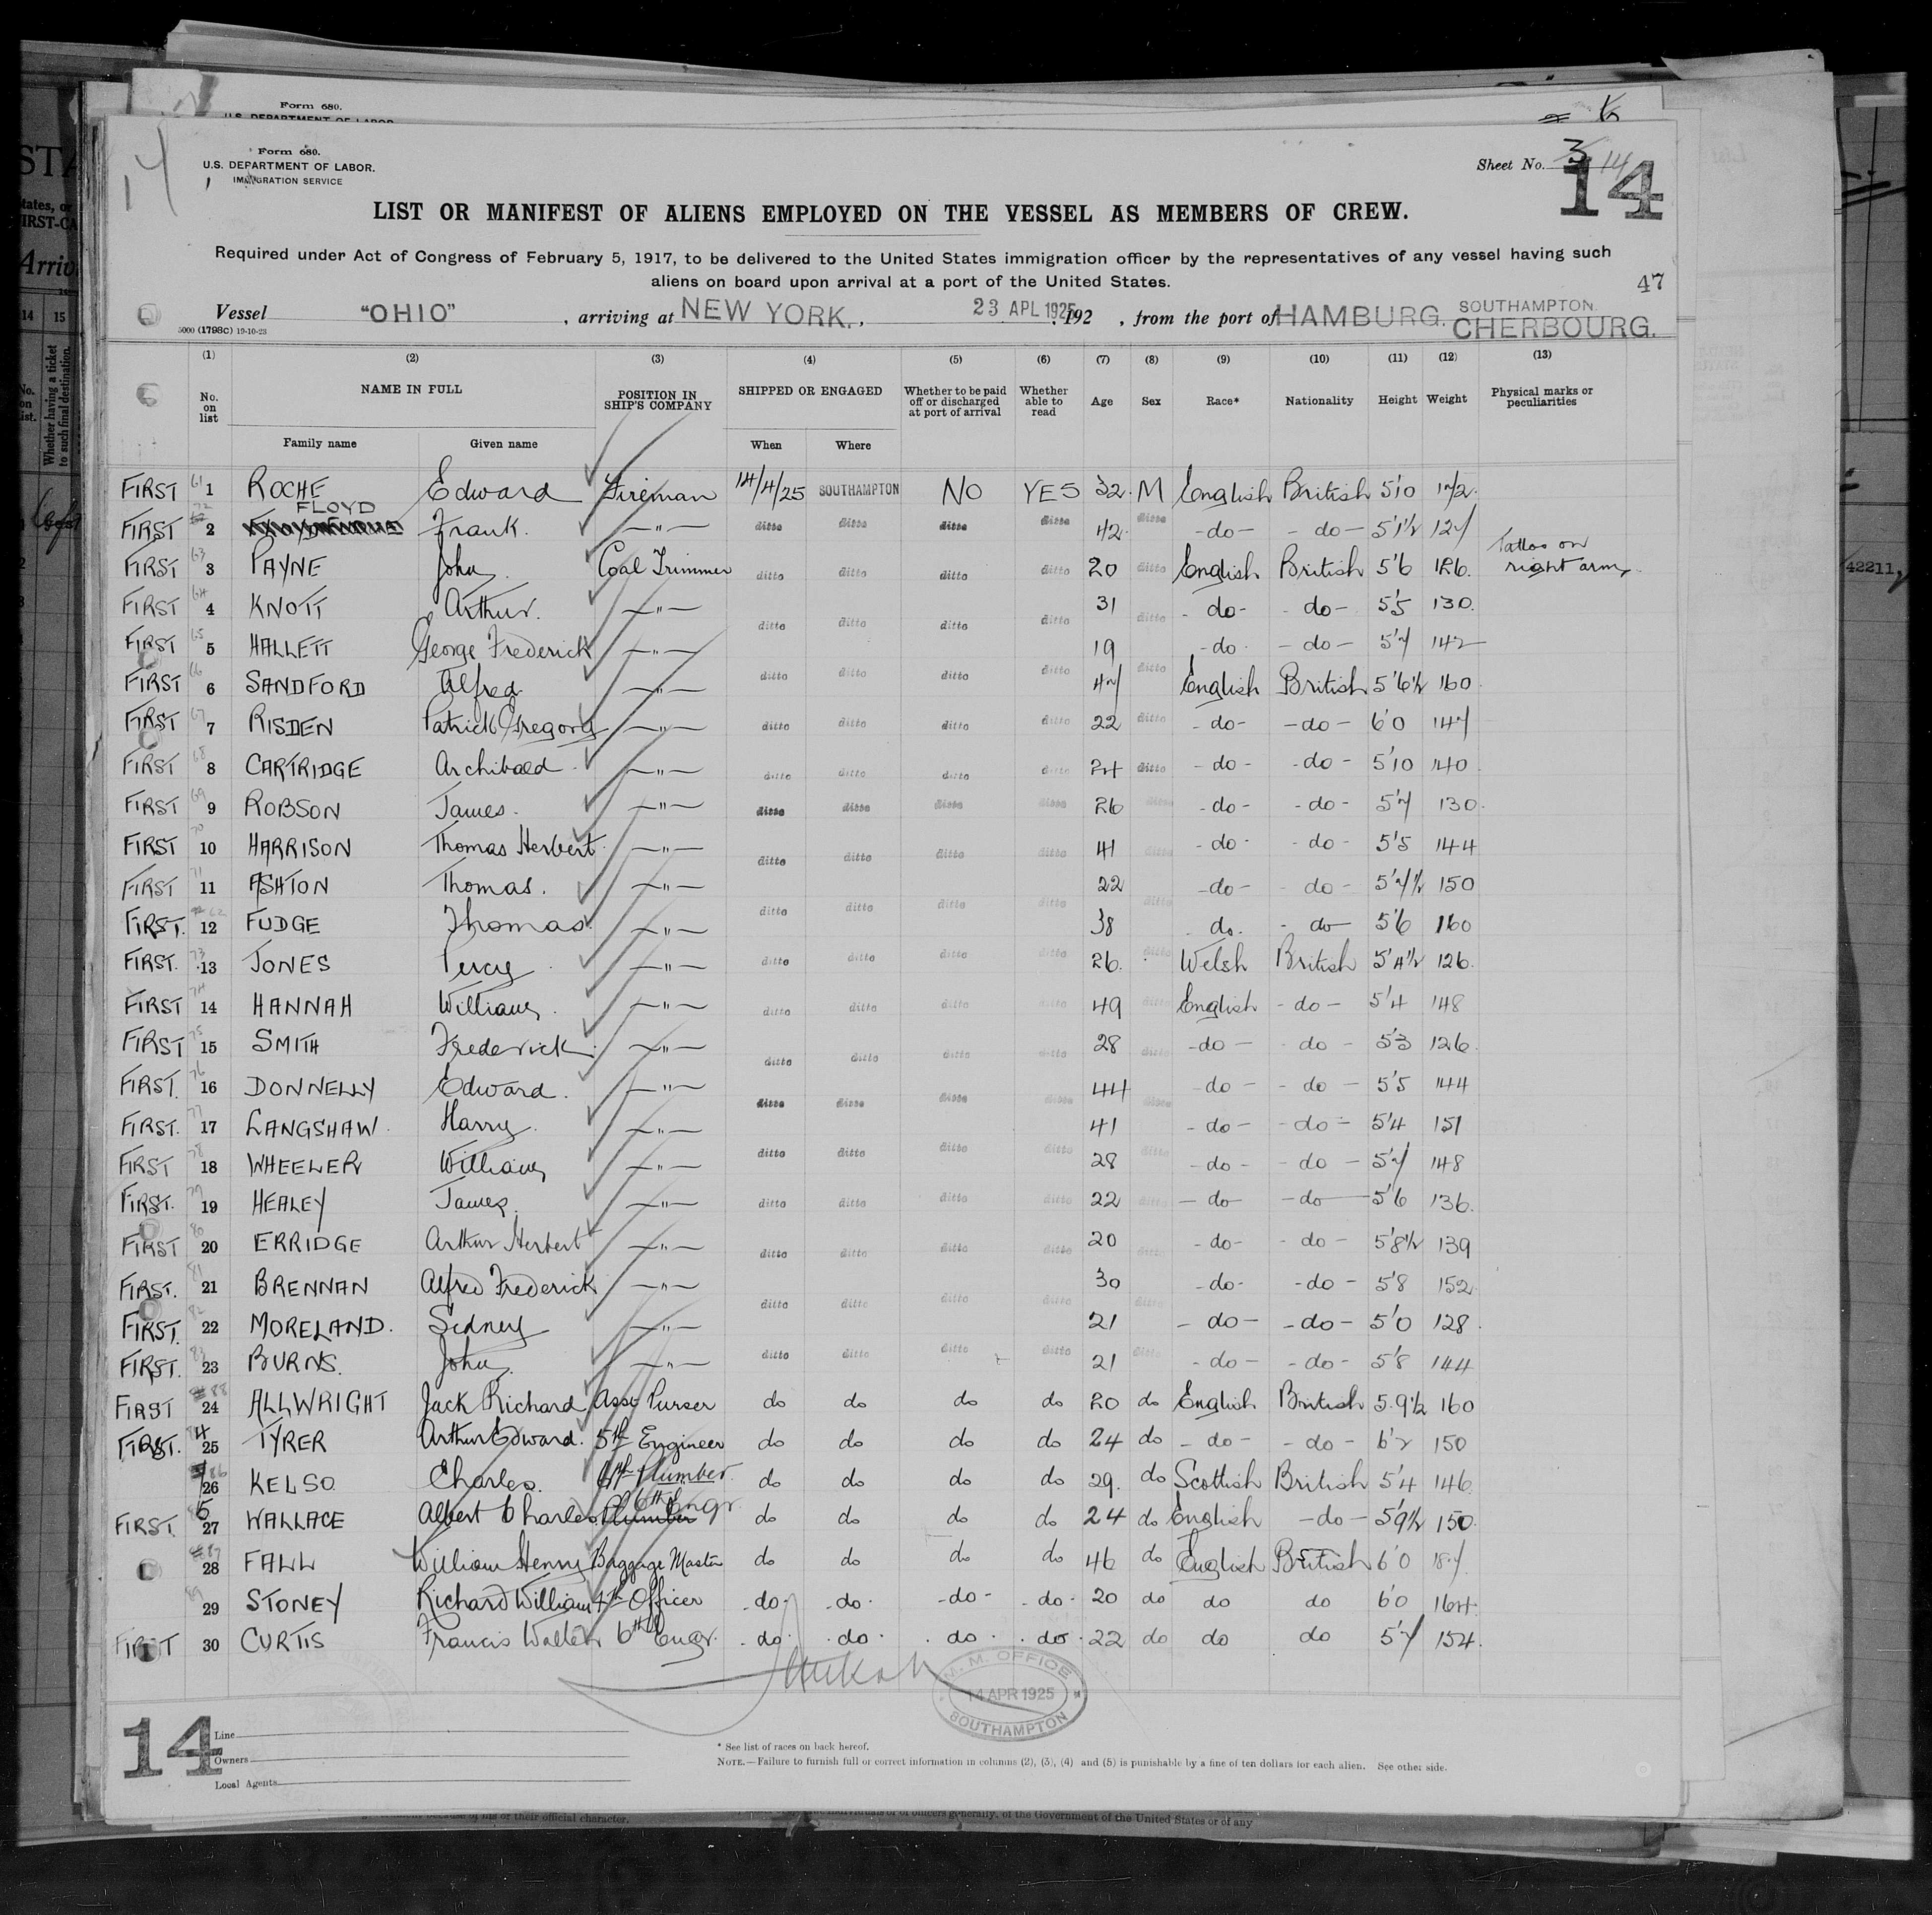 Form 680.
U.S. DEPARTMENT OF LABOR
Form 680.
U.S. DEPARTMENT OF LABOR.
IMMIGRATION SERVICE
14
Sheet No. 3 14
14
LIST OR MANIFEST OF ALIENS EMPLOYED ON THE VESSEL AS MEMBERS OF CREW.
Required under Act of Congress of February 5, 1917, to be delivered to the United States immigration officer by the representatives of any vessel having such
aliens on board upon arrival at a port of the United States.
47
Vessel "OHIO", arriving at NEW YORK., 23 APL 1925, 192 , from the port of HAMBURG. SOUTHAMPTON. CHERBOURG.
5000 (1798C) 19-10-23
(1) (2) (3) (4) (5) (6) (7) (8) (9) (10) (11) (12) (13)
No. on list NAME IN FULL POSITION IN SHIP'S COMPANY SHIPPED OR ENGAGED Whether to be paid off or discharged at port of arrival Whether able to read Age Sex Race* Nationality Height Weight Physical marks or peculiarities
Family name Given name When Where
FIRST 61 1 ROCHE Edward Fireman 14/4/25 SOUTHAMPTON NO YES 32. M English British 5'10 172.
FIRST 72 2 FLOYD Frank. —"— ditto ditto ditto ditto 42. ditto -do- -do- 5'1½ 127
FIRST 63 3 PAYNE John Coal Trimmer ditto ditto ditto ditto 20 ditto English British 5'6 126. Tattoo on right arm
FIRST 64 4 KNOTT Arthur. —"— ditto ditto ditto ditto 31 ditto -do- -do- 5'5 130.
FIRST 65 5 HALLETT George Frederick —"— 19 -do- -do- 5'7 142
FIRST 66 6 SANDFORD Alfred —"— ditto ditto ditto ditto 47 ditto English British 5'6½ 160.
FIRST 67 7 RISDEN Patrick Gregory —"— ditto ditto ditto ditto 22 ditto -do- -do- 6'0 147
FIRST 68 8 CARTRIDGE Archibald —"— ditto ditto ditto ditto 24 ditto -do- -do- 5'10 140
FIRST 69 9 ROBSON James. —"— ditto ditto ditto ditto 26 ditto -do- -do- 5'7 130.
FIRST 70 10 HARRISON Thomas Herbert. —"— ditto ditto ditto ditto 41 ditto -do- -do- 5'5 144
FIRST 71 11 ASHTON Thomas. —"— 22 -do- -do- 5'7½ 150
FIRST. 62 12 FUDGE Thomas. —"— ditto ditto ditto ditto 38 ditto do. do 5'6 160
FIRST. 73 13 JONES Percy —"— ditto ditto ditto ditto 26. ditto Welsh British 5'4½ 126.
FIRST 74 14 HANNAH William —"— ditto ditto ditto ditto 49 ditto English -do- 5'4 148
FIRST 75 15 SMITH Frederick. —"— ditto ditto ditto ditto 28 ditto -do- -do- 5'3 126.
FIRST. 76 16 DONNELLY Edward. —"— ditto ditto ditto ditto 44 ditto -do- -do- 5'5 144
FIRST. 77 17 LANGSHAW. Harry. —"— 41 -do- -do- 5'4 151
FIRST 78 18 WHEELER William —"— ditto ditto ditto ditto 28 ditto -do- -do- 5'7 148
FIRST. 79 19 HEALEY James. —"— ditto ditto ditto ditto 22 ditto -do- -do- 5'6 136.
FIRST 80 20 ERRIDGE Arthur Herbert —"— ditto ditto ditto ditto 20 ditto -do- -do- 5'8½ 139
FIRST. 81 21 BRENNAN Alfred Frederick —"— 30 -do- -do- 5'8 152.
FIRST. 82 22 MORELAND. Sidney —"— ditto ditto ditto ditto 21 ditto -do- -do- 5'0 128.
FIRST. 83 23 BURNS. John. —"— ditto ditto ditto ditto 21 ditto -do- -do- 5'8 144
FIRST 88 24 ALLWRIGHT Jack Richard Asst Purser do do do do 20 do English British 5.9½ 160
FIRST. 84 25 TYRER Arthur Edward. 5th Engineer do do do do 24 do -do- -do- 6'2 150
86 26 KELSO Charles. Plumber. do do do do 29. do Scottish British 5'4 146.
FIRST. 85 27 WALLACE Albert Charles Plumber 6th Engr. do do do do 24 do English -do- 5'9½ 150.
87 28 FALL William Henry Baggage Master do do do do 46 do English British 6'0 187.
89 29 STONEY Richard William 4th Officer -do- -do- -do- -do- 20 do do do 6'0 164.
FIRST 30 CURTIS Francis Walter 6th Engr. -do- -do- -do- -do- 22 do do do 5'7 154.
M. M. OFFICE
14 APR 1925
SOUTHAMPTON
14
Line
Owners
Local Agents
* See list of races on back hereof.
NOTE.—Failure to furnish full or correct information in columns (2), (3), (4) and (5) is punishable by a fine of ten dollars for each alien. See other side.
42211,